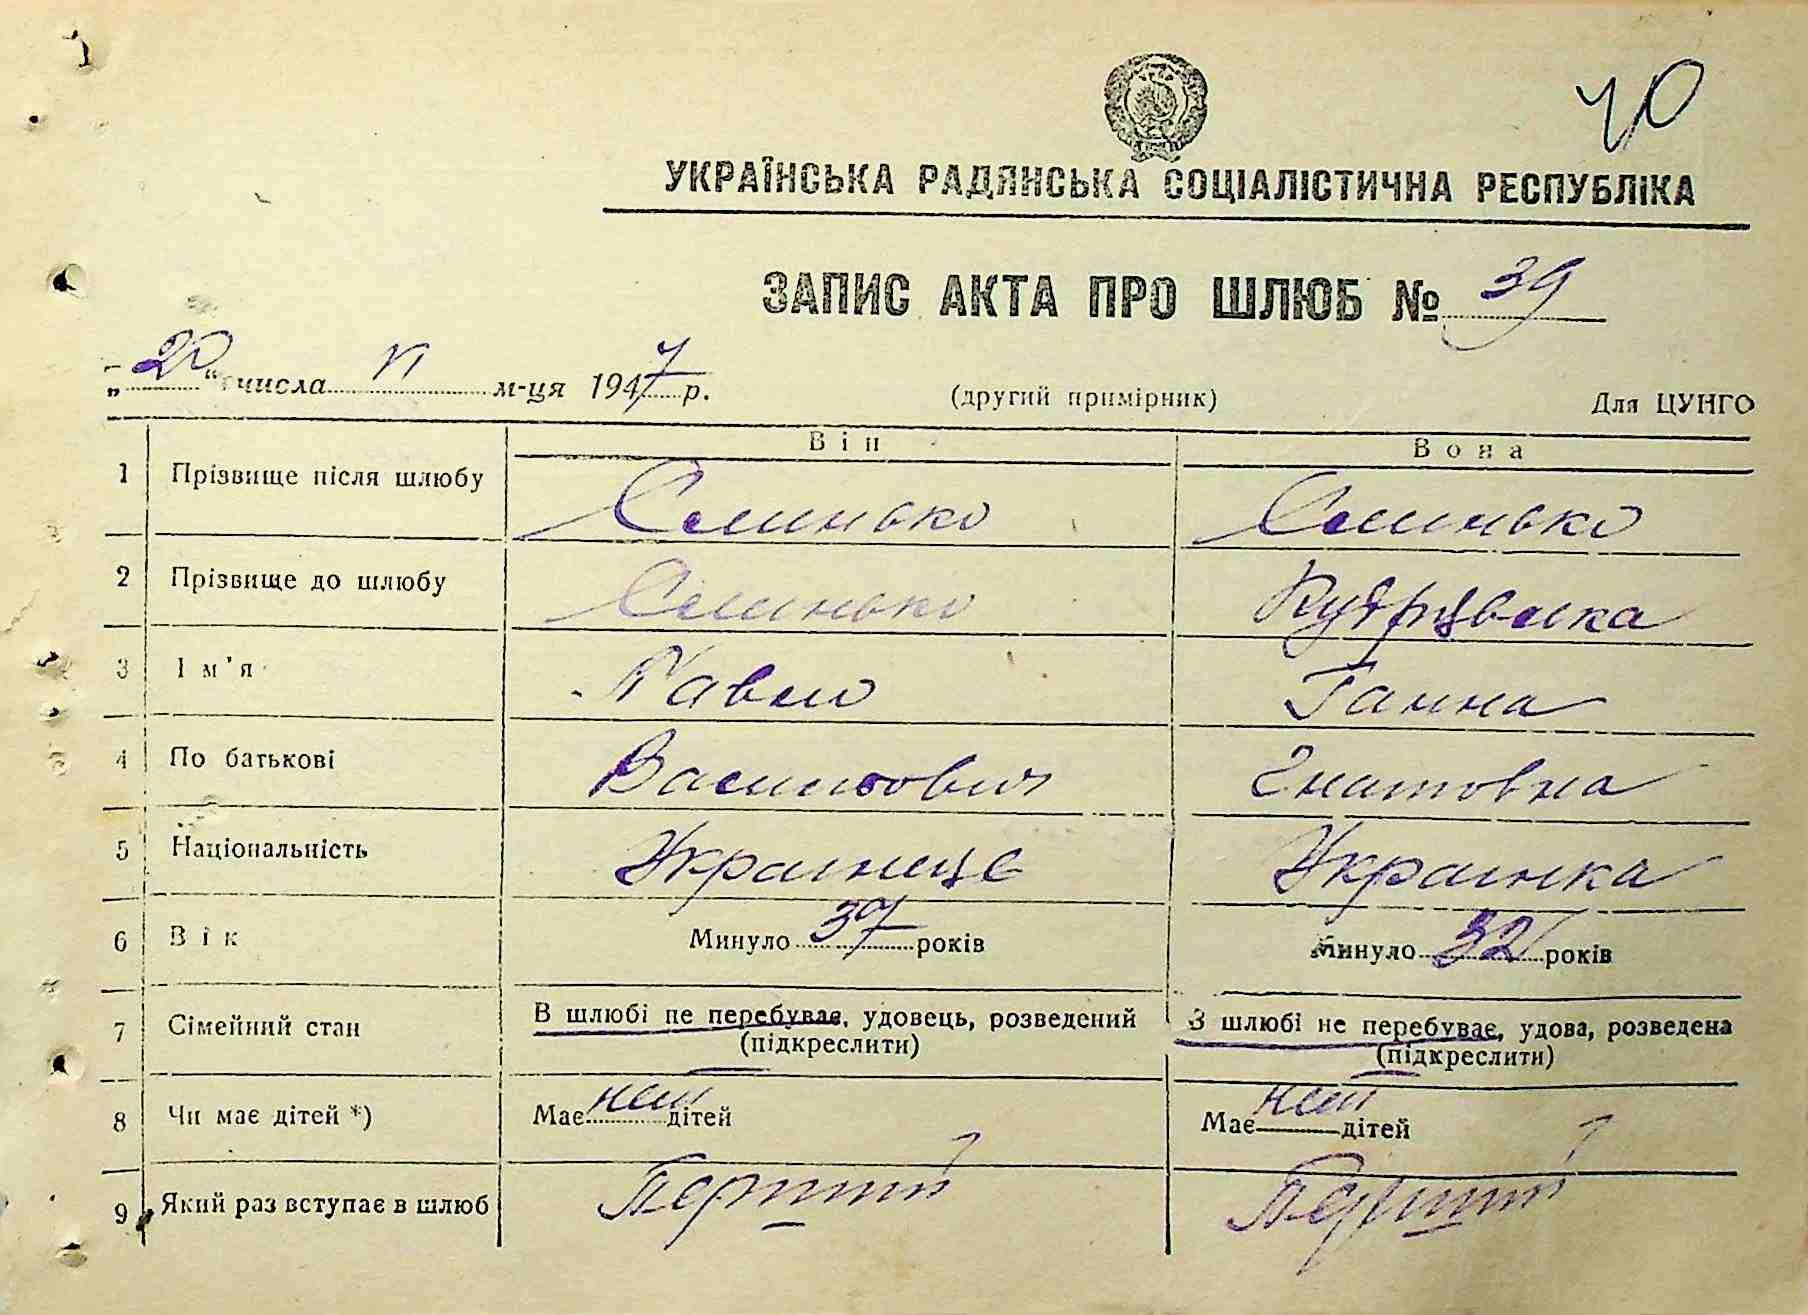 40
УКРАЇНСЬКА РАДЯНСЬКА СОЦІАЛІСТИЧНА РЕСПУБЛІКА
ЗАПИС АКТА ПРО ШЛЮБ № 39
„20“ числа VI м-ця 1947 р. (другий примірник) Для ЦУНГО
Він Вона
1 Прізвище після шлюбу Слинько Слинько
2 Прізвище до шлюбу Слинько
3 Ім'я Павло Ганна
4 По батькові Васильович Гнатовна
5 Національність Украинець Украинка
6 Вік Минуло 37 років Минуло 32 років
7 Сімейний стан В шлюбі не перебуває, удовець, розведений З шлюбі не перебуває, удова, розведена
(підкреслити) (підкреслити)
8 Чи має дітей *) Має нет дітей Має нет дітей
9 Який раз вступає в шлюб Перший Перший